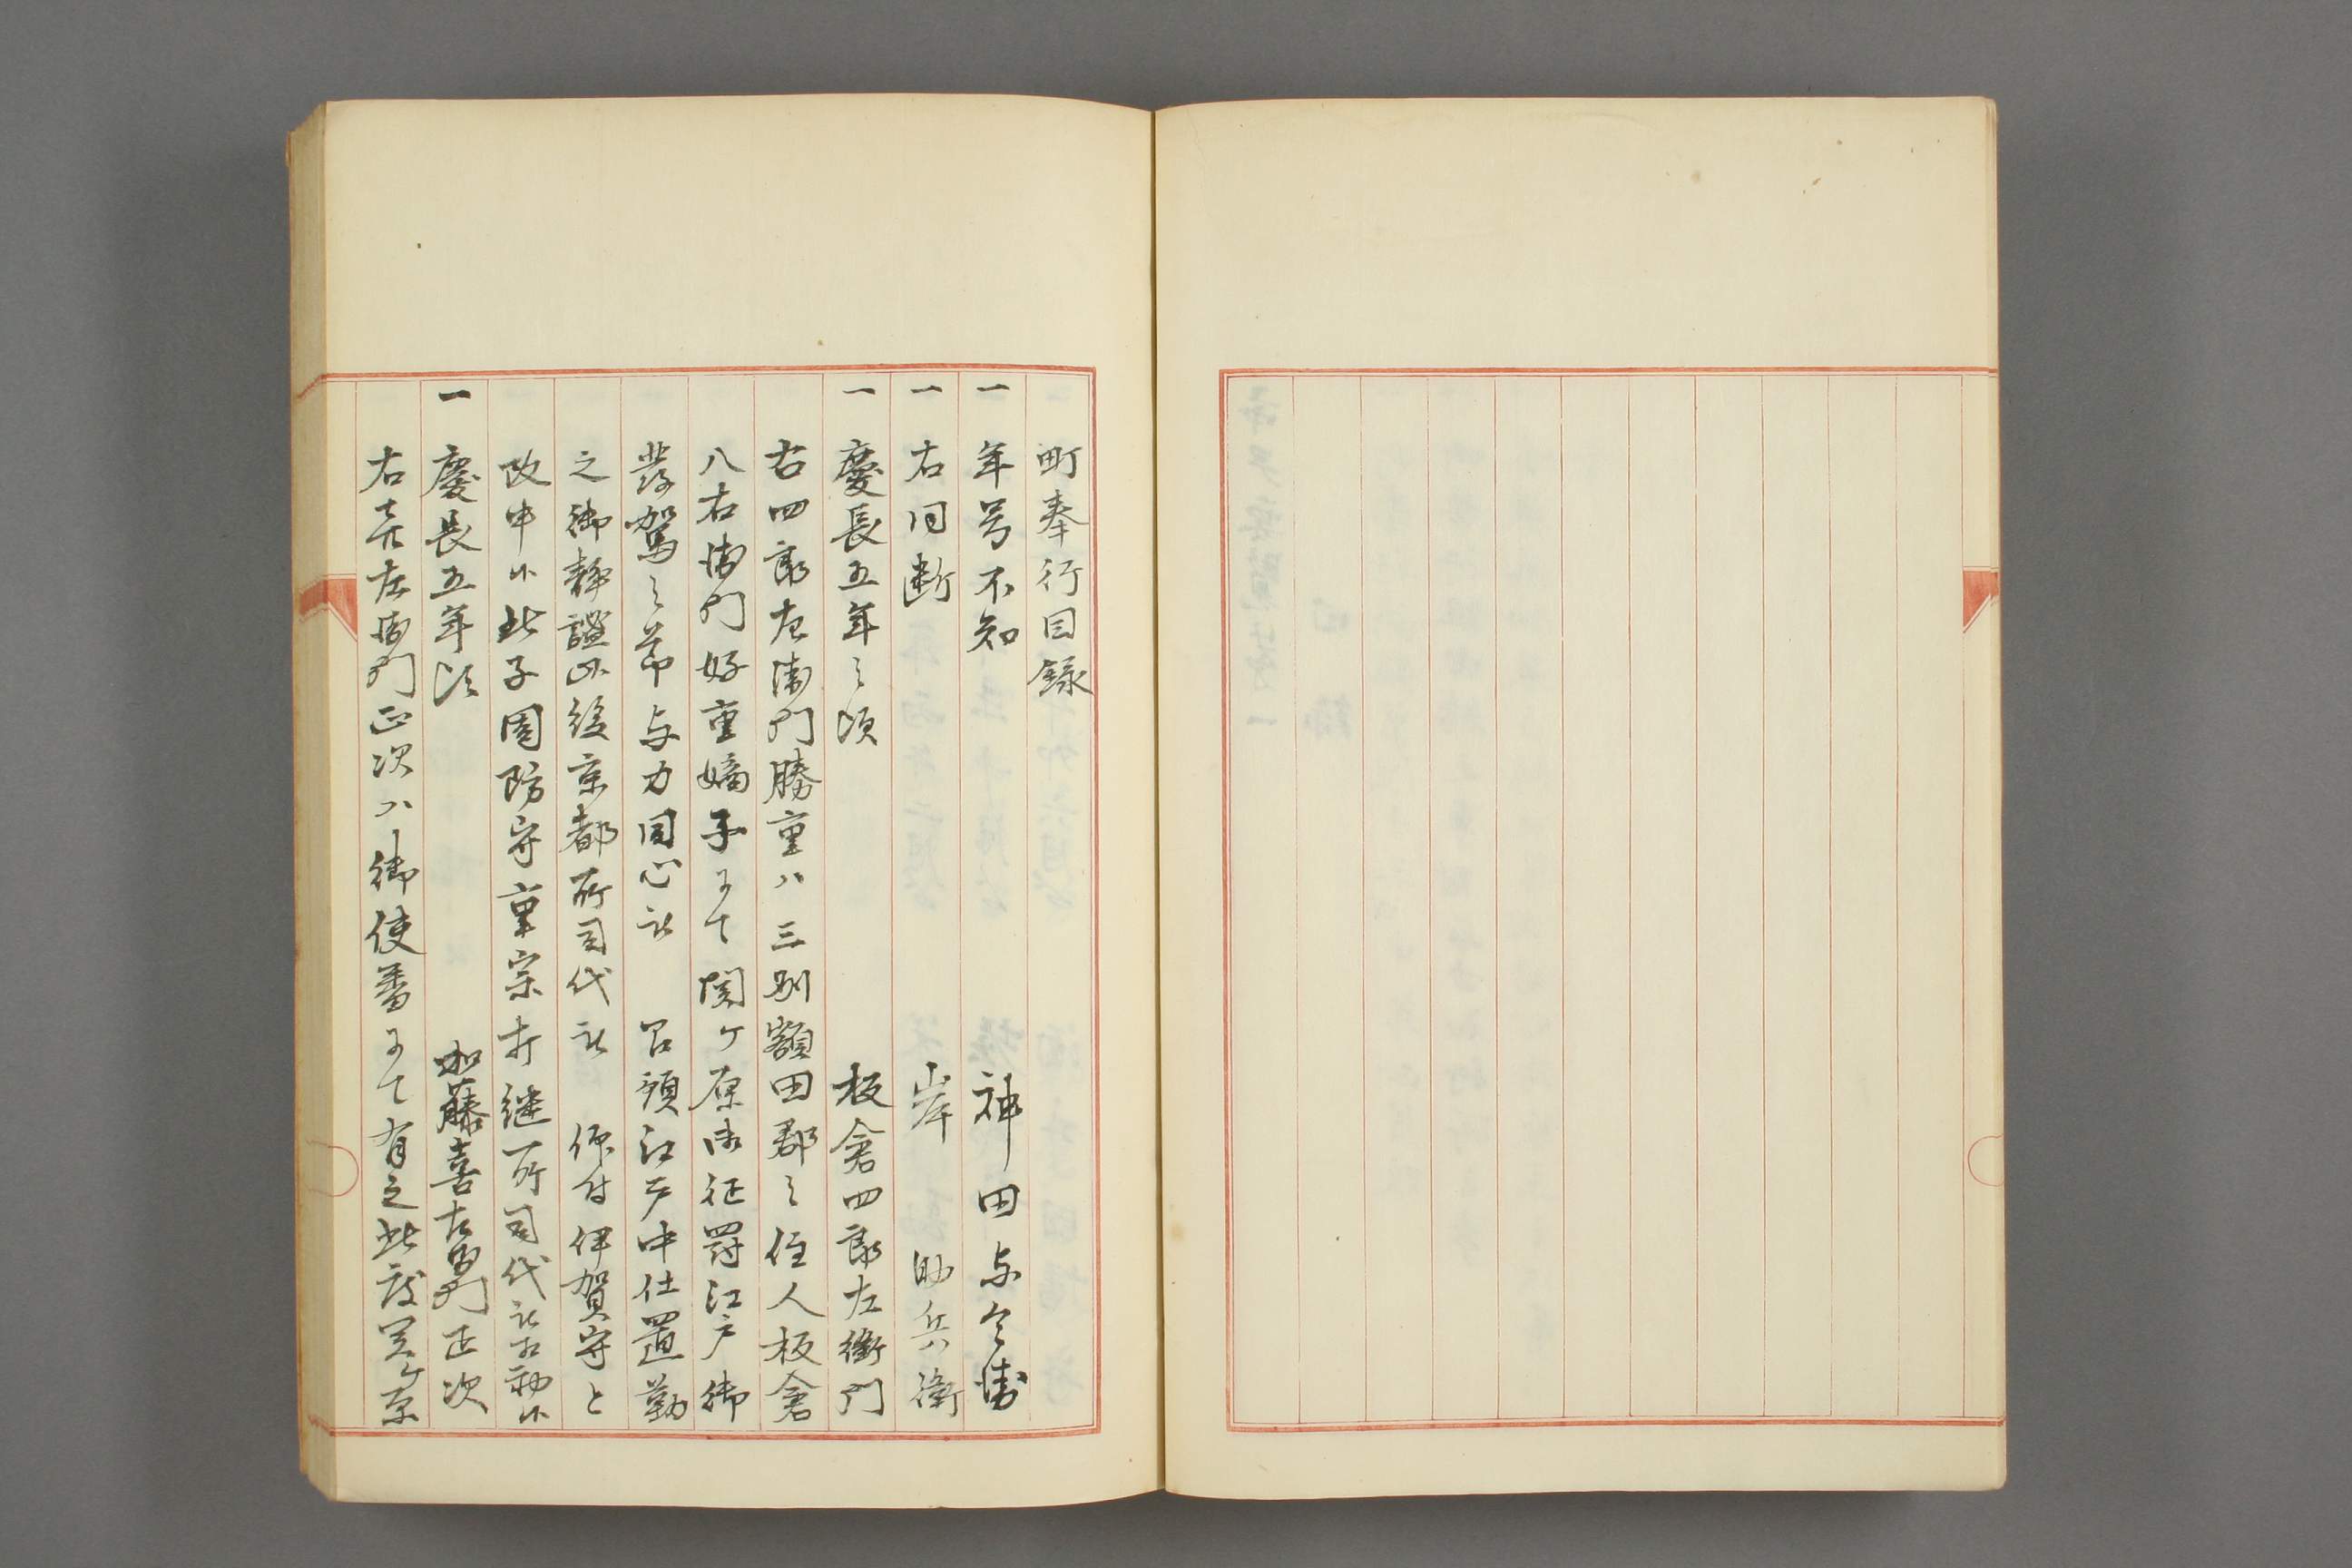 町奉行目録
一 年号不知 神田与兵衛
一 右同断 岸 助兵衛
一 慶長五年之頃 板倉四郎左衛門
右四郎左衛門勝重ハ三州額田郡之住人板倉
八右衛門好重嫡子ニて関ヶ原御征罸江戸御
発駕之節与力同心被 召預江戸中仕置勤
之御静謐以後京都所司代被 仰付伊賀守と
改申候此子周防守重宗打継所司代被相勤候
一 慶長五年頃 加藤喜左衛門正次
右喜左衛門正次ハ御使番ニて有之此度関ヶ原